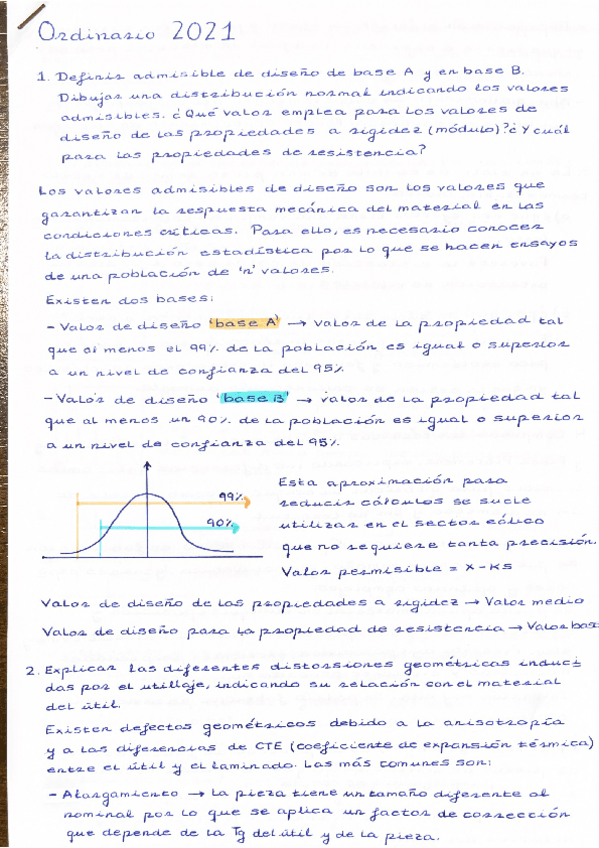 Ordinario 2021
1. Definir admisible de diseño de base A y en base B.
Dibujar una distribución normal indicando los valores
admisibles. ¿Qué valor emplea para los valores de
diseño de las propiedades a rigidez (módulo)? ¿Y cuál
para las propiedades de resistencia?
Los valores admisibles de diseño son los valores que
garantizan la respuesta mecánica del material en las
condiciones críticas. Para ello, es necesario conocer
la distribución estadística por lo que se hacen ensayos
de una población de 'n' valores.
Existen dos bases:
- Valor de diseño 'base A' → valor de la propiedad tal
que al menos el 99% de la población es igual o superior
a un nivel de confianza del 95%
- Valor de diseño 'base B' → valor de la propiedad tal
que al menos un 90% de la población es igual o superior
a un nivel de confianza del 95%.
99%
90%
Esta aproximación para
reducir cálculos se suele
utilizar en el sector eólico
que no requiere tanta precisión.
Valor permisible = X - KS
Valor de diseño de las propiedades a rigidez → Valor medio
Valor de diseño para la propiedad de resistencia → Valor bas
2. Explicar las diferentes distorsiones geométricas induci
das por el utillaje, indicando su relación con el material
del útil.
Existen defectos geométricos debido a la anisotropía
y a las diferencias de CTE (coeficiente de expansión térmica)
entre el útil y el laminado. Las más comunes son:
- Alargamiento → la pieza tiene un tamaño diferente al
nominal por lo que se aplica un factor de corrección
que depende de la Tg del útil y de la pieza.